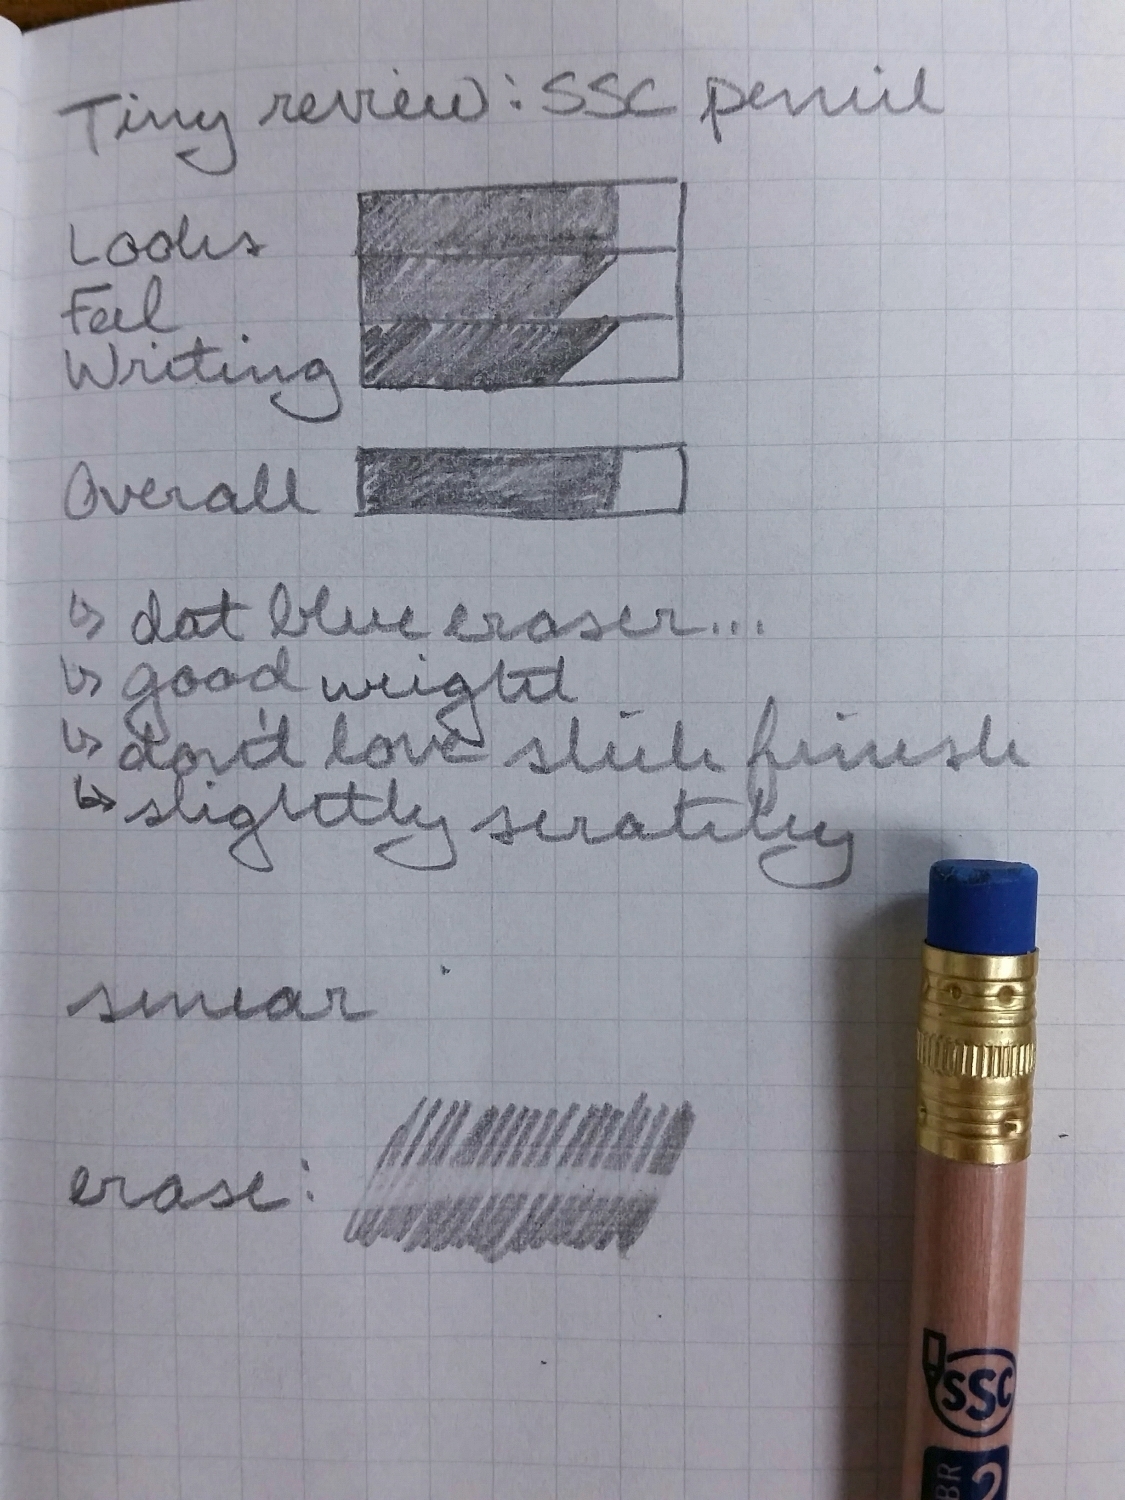 Tiny review: SSC pencil
Looks
Feel
Writing
Overall
↳ dat blue eraser...
↳ good weight
↳ don't love slick finish
↳ slightly scratchy
smear
erase:
SSC
BR 2